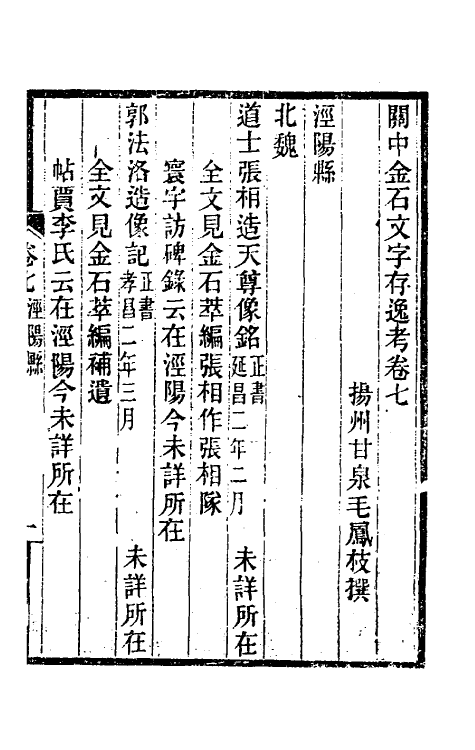 關中金石文字存逸考卷七
揚州甘泉毛鳳枝撰
涇陽縣
北魏
道士張相造天尊像銘 正書 延昌二年二月 未詳所在
全文見金石萃編張相作張相隊
寰宇訪碑錄云在涇陽今未詳所在
郭法洛造像記 正書 孝昌二年三月 未詳所在
全文見金石萃編補遺
帖賈李氏云在涇陽今未詳所在
卷七 涇陽縣 一